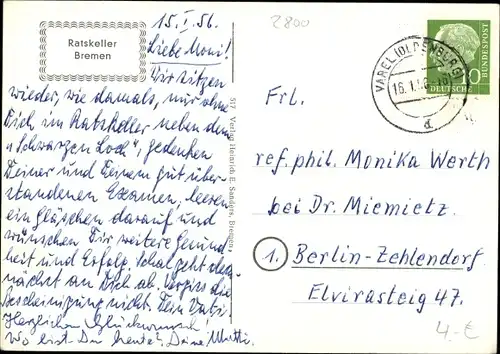 15.I.56.
2800
Ratskeller
Bremen
Liebe Moni!
Wir sitzen
wieder, wie damals, nur ohne
Dich im Ratskeller neben dem
"Schwarzen Loch", gedenken
Deiner und Deinem gut über-
standenen Examen, leeren
ein Gläschen darauf und
wünschen Dir weitere Gesund
heit und Erfolg. Schal geht dem-
nächst an Dich ab. Vergiss die
Bescheinigung nicht. Dein Vati
Herzlichen Glückwunsch!
Wo bist Du heute? Deine Mutti.
517 Verlag Heinrich E. Sanders, Bremen
VAREL (OLDENBURG)
16.1.56
d
10
DEUTSCHE
BUNDESPOST
Frl.
ref. phil. Monika Werth
bei Dr. Miemietz
1. Berlin-Zehlendorf
Elvirasteig 47.
4,-€